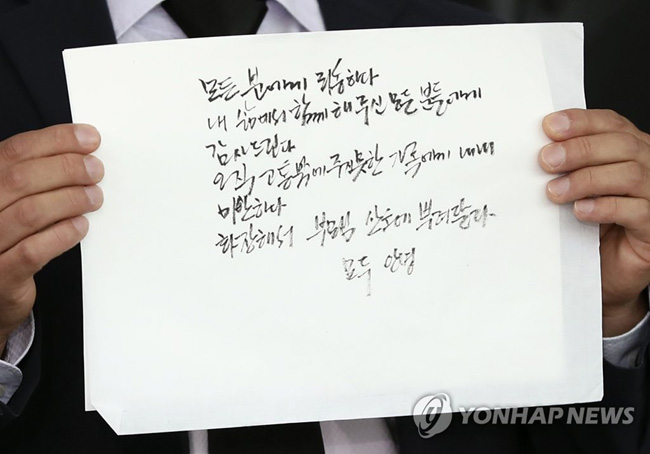 모든 분에게 죄송하다
내 삶에서 함께 해 주신 모든 분들에게
감사드린다
오직 고통밖에 주지못한 가족에게 내내
미안하다
화장해서 부모님 산소에 뿌려달라
모두 안녕
YONHAP NEWS